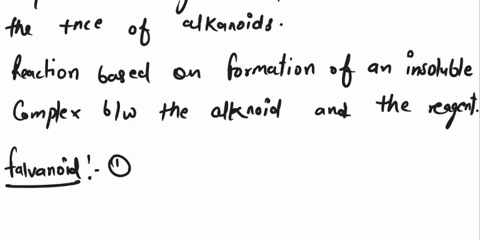 the tnce of alkanoids.
Reaction based on formation of an insoluble
Complex b/w the alknoid and the reagent.
falvanoid!- ①